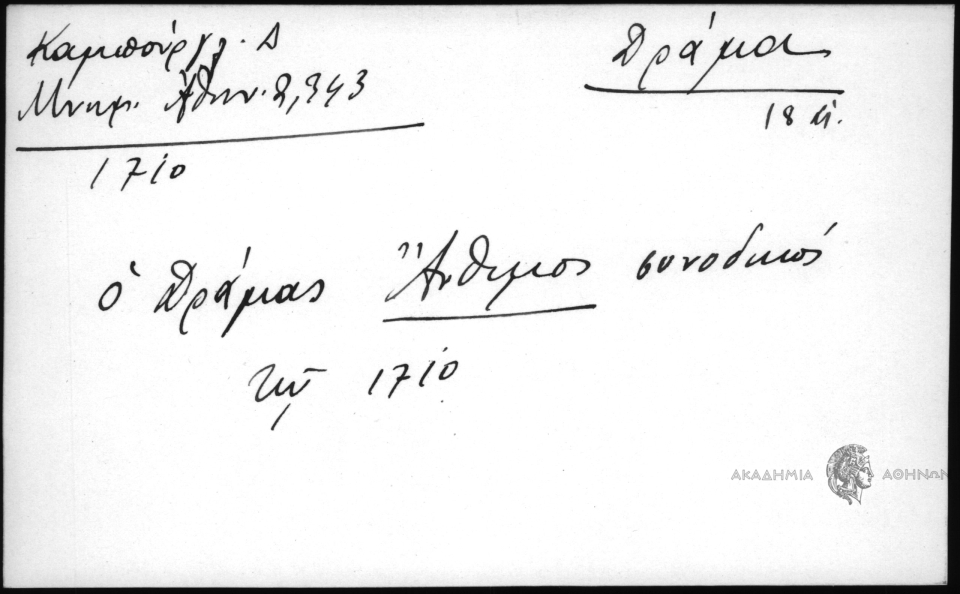 Καμπούργλ. Δ
Μνημ. Ἀθην. 2,343
1710
Δράμα
18 αἰ.
ὁ Δράμας Ἄνθιμος συνοδικός
τῷ 1710
ΑΚΑΔΗΜΙΑ ΑΘΗΝΩΝ